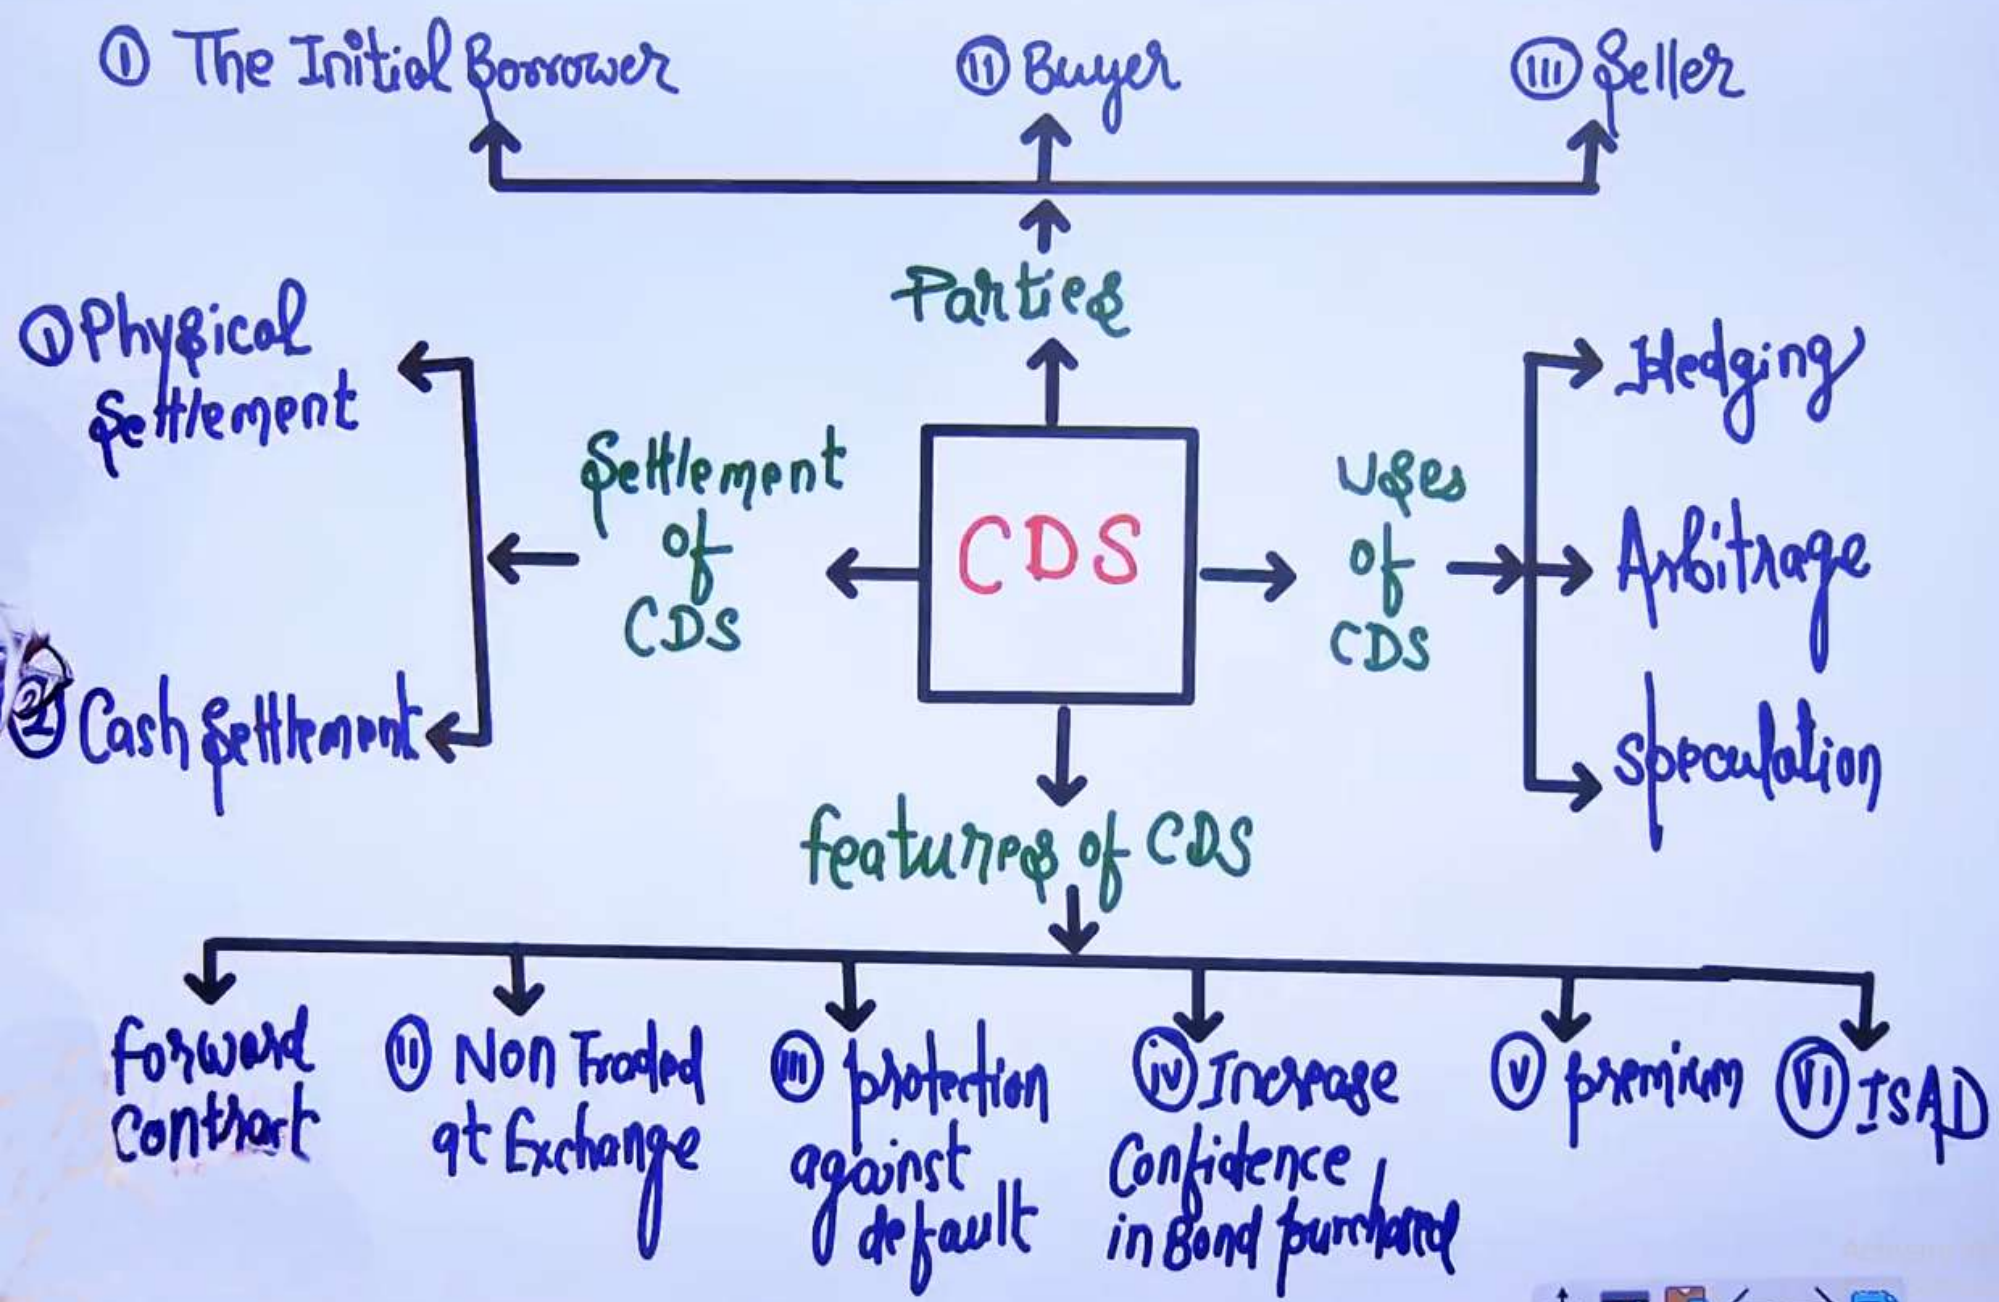 ① The Initial Borrower
⑪ Buyer
Ⓘⓘⓘ Seller
Parties
① Physical
Settlement
② Cash Settlement
Settlement
of
CDS
CDS
Uses
of
CDS
Hedging
Arbitrage
Speculation
features of CDS
forward
contract
⑪ Non Traded
at Exchange
ⓘⓘⓘ protection
against
default
ⓘⓥ Increase
Confidence
in Bond purchased
Ⓥ premium
ⓋⒾ ISAD